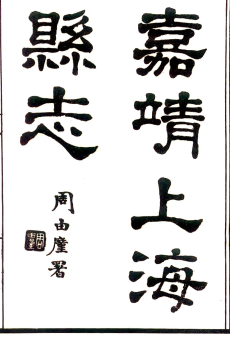 嘉靖上海
縣志
周由廑署